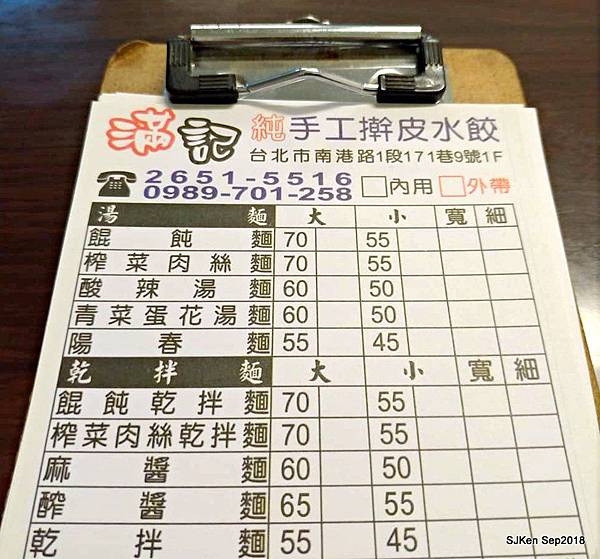 滿記 純手工擀皮水餃
台北市南港路1段171巷9號1F
☎ 2651-5516
0989-701-258 □內用 □外帶
湯麵 大 小 寬 細
餛飩麵 70 55
榨菜肉絲麵 70 55
酸辣湯麵 60 50
青菜蛋花湯麵 60 50
陽春麵 55 45
乾拌麵 大 小 寬 細
餛飩乾拌麵 70 55
榨菜肉絲乾拌麵 70 55
麻醬麵 60 50
醡醬麵 65 55
乾拌麵 55 45
SJKen Sep2018